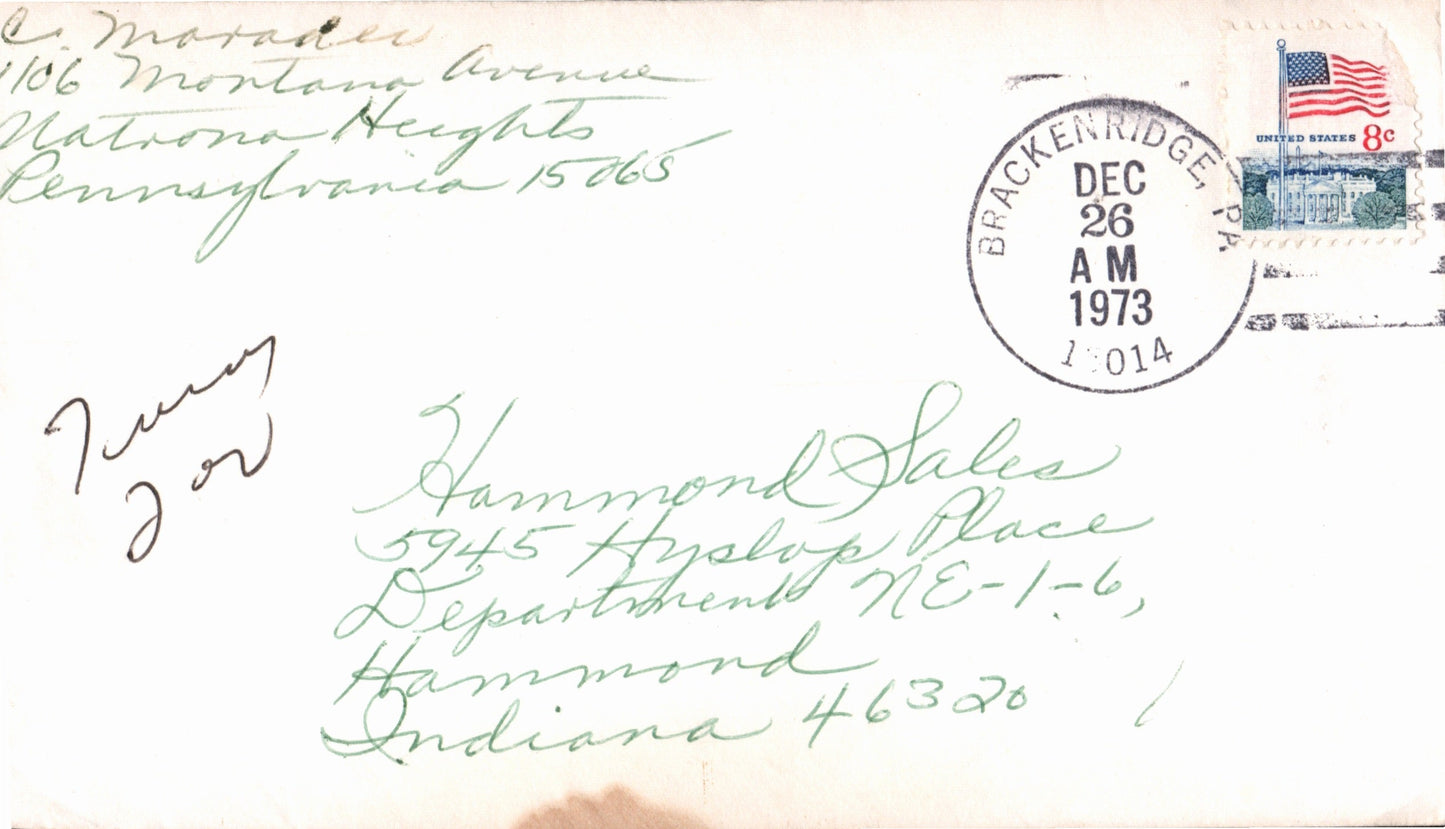 C. Maradei
1106 Montana Avenue
Natrona Heights
Pennsylvania 15065
UNITED STATES 8c
BRACKENRIDGE, PA
DEC
26
AM
1973
15014
Hammond Sales
5945 Hyslop Place
Department NE-1-6,
Hammond
Indiana 46320